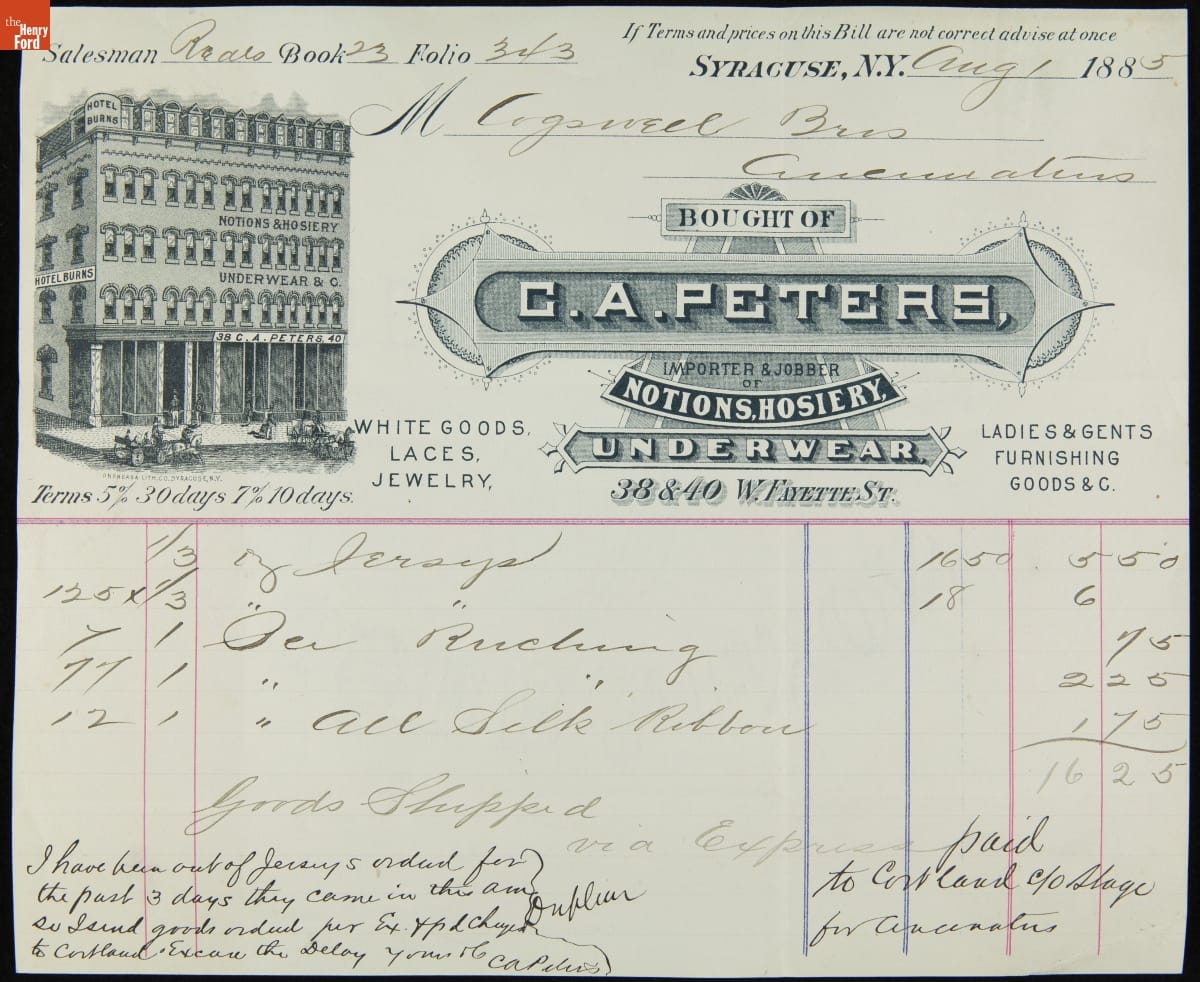 the
Henry
Ford
If Terms and prices on this Bill are not correct advise at once
Salesman Book 23 Folio 343
SYRACUSE, N.Y. Aug 1 1885
M Cogswell Bros
Cincinnatus
HOTEL
BURNS
NOTIONS & HOSIERY
HOTEL BURNS
UNDERWEAR & C.
38 C. A. PETERS, 40
ONONDAGA LITH. CO. SYRACUSE, N.Y.
Terms 5% 30 days 7% 10 days.
BOUGHT OF
C. A. PETERS,
IMPORTER & JOBBER
OF
NOTIONS, HOSIERY,
UNDERWEAR,
38 & 40 W. FAYETTE ST.
WHITE GOODS,
LACES,
JEWELRY,
LADIES & GENTS
FURNISHING
GOODS & C.
1/3 Dz Jersys 16 50 5 50
125 x 1/3 " " 18 6
7 1 Pce Ruching 75
77 1 " " 2 25
12 1 " All Silk Ribbon 1 75
16 25
Goods Shipped
via Express paid
to Cortland c/o Stage
for Cincinnatus
I have been out of Jerseys ordered for
the past 3 days they came in this am
so I send goods ordered per Ex. & pd Charges
to Cortland. Excuse the Delay Yours &c
C A Peters